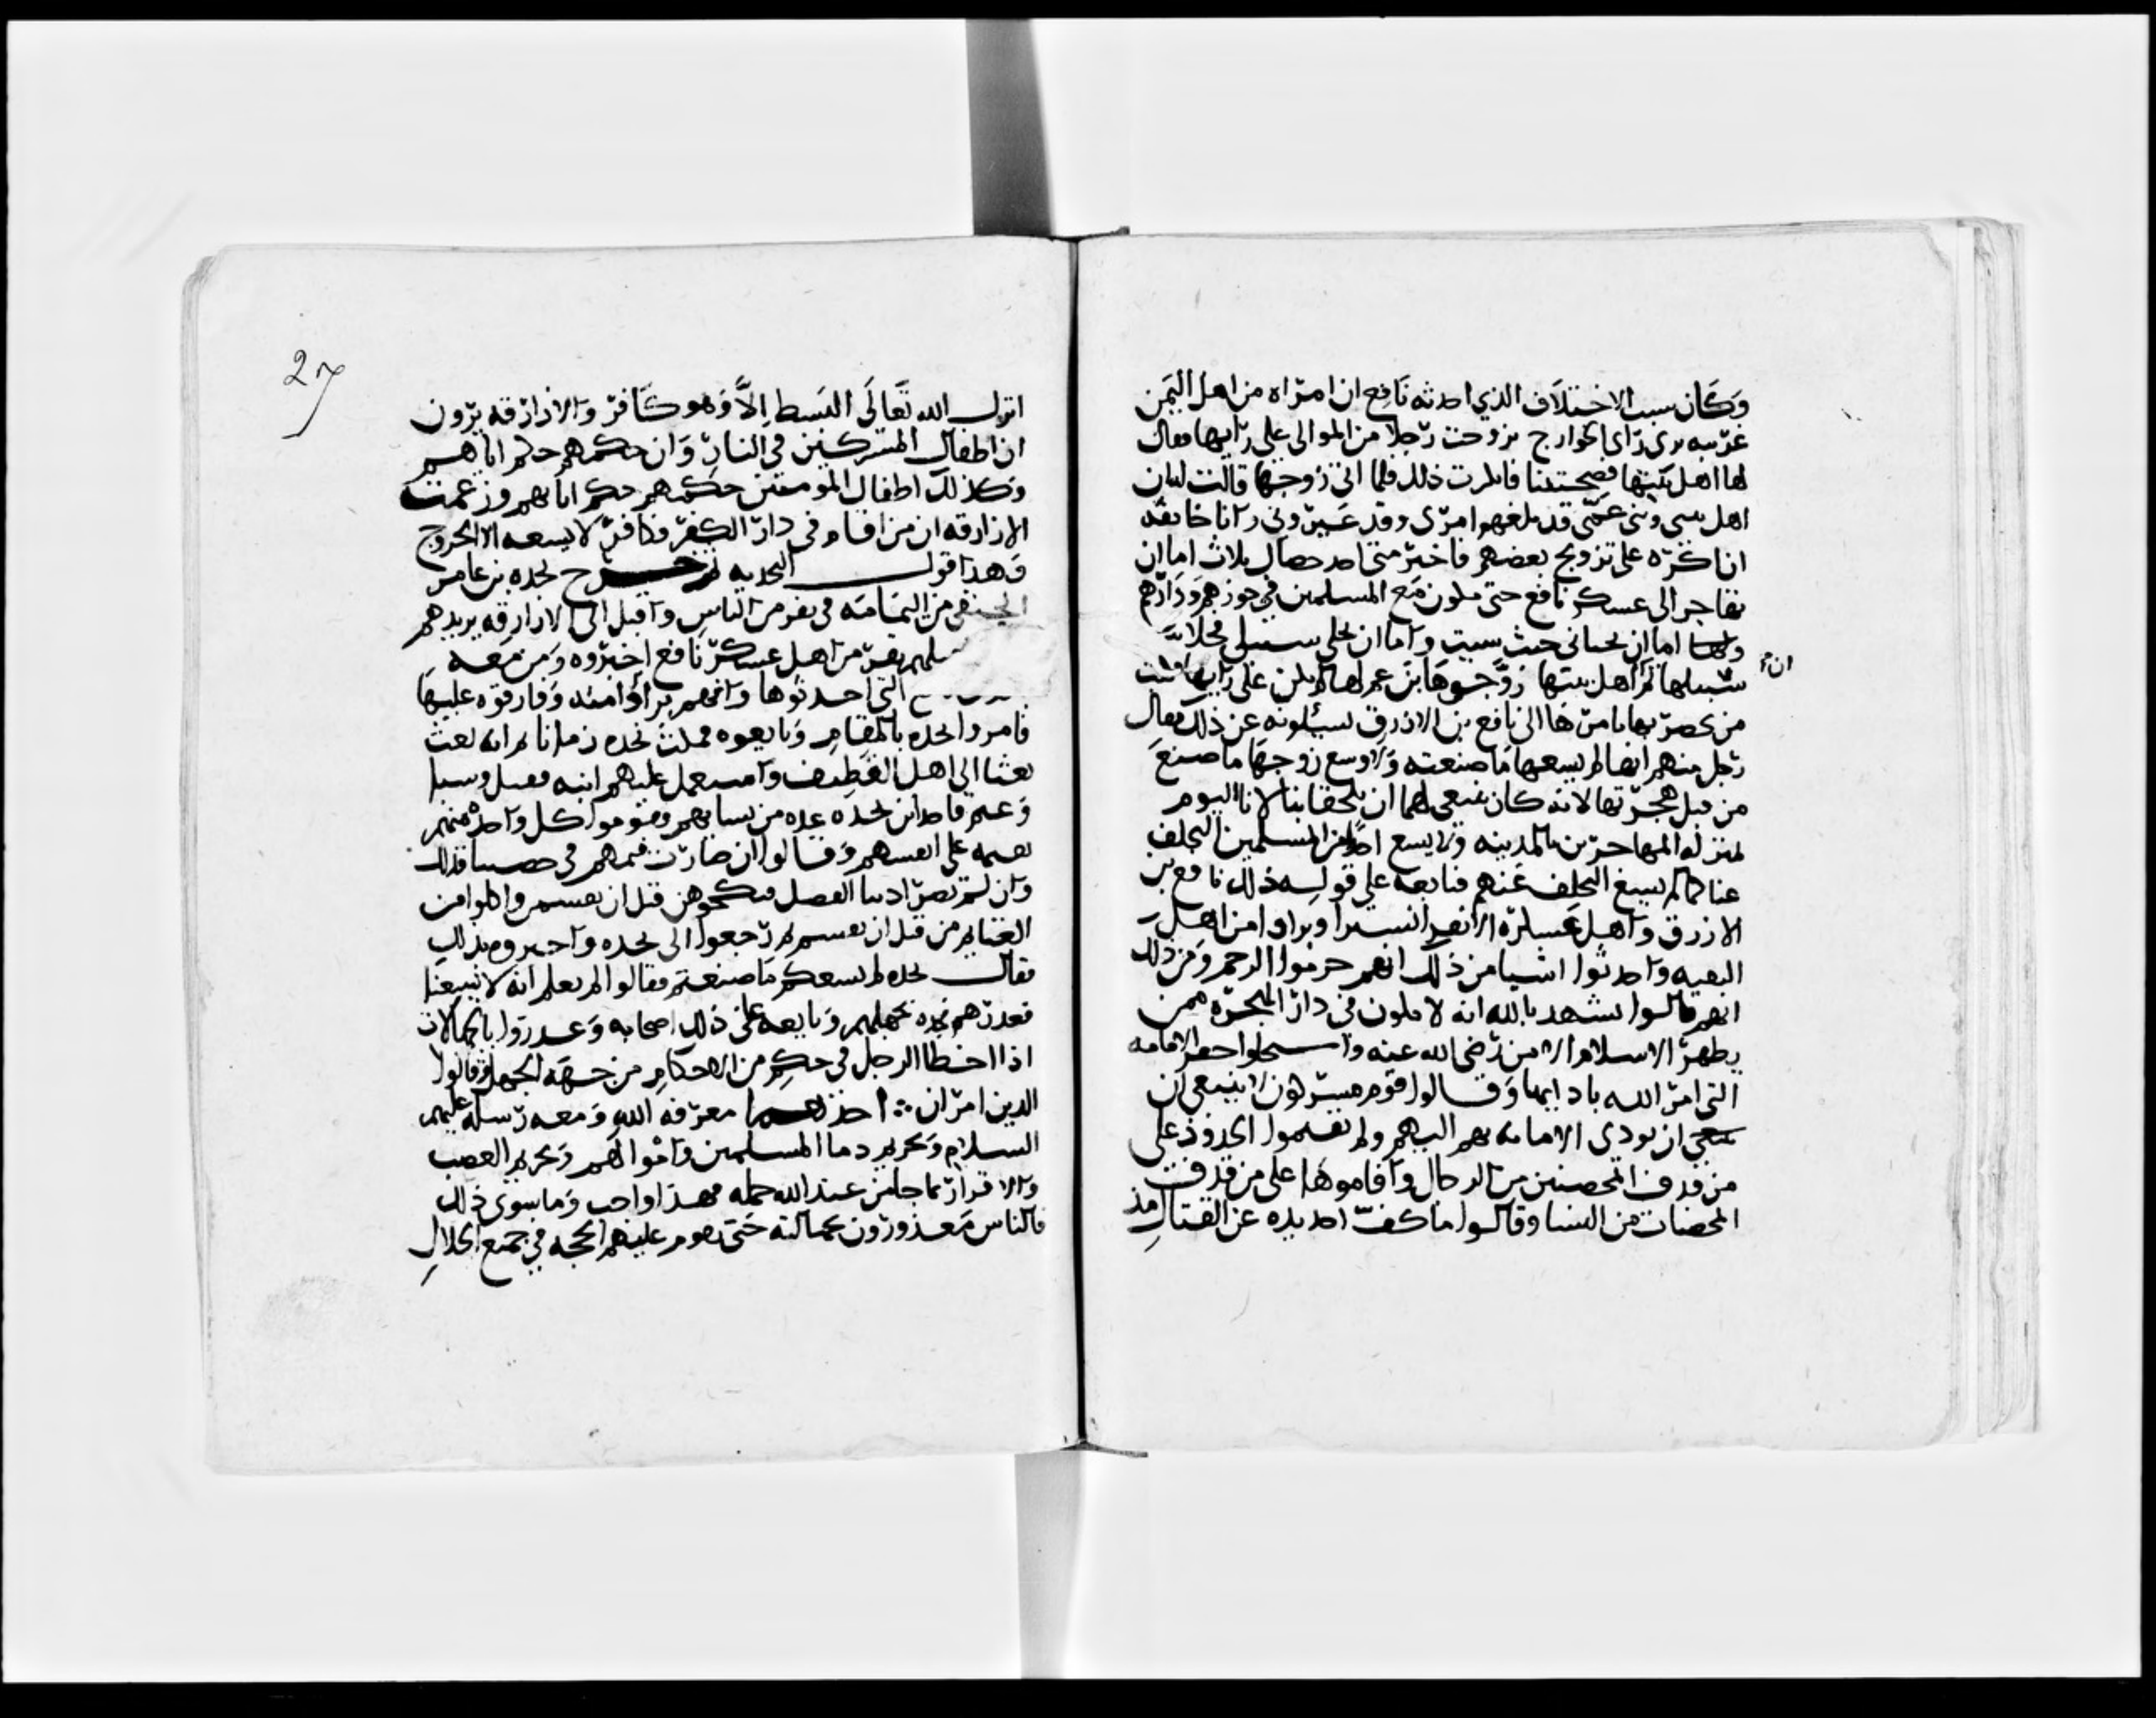 وكان سبب الاختلاف الذي احدثه نافع ان امراه من اهل اليمن
عربيه ترى راي الخوارج تزوجت رجلا من الموالي على رايها فقال
لها اهل بيتها فضحتينا فانكرت ذلك فلما اتى زوجها قالت له ان
اهل بيتي وبني عمي قد بلغهم امري وقد عيروني وانا خايفه
ان اكره على تزويج بعضهم فاختر مني احد خصال ثلاث اما ان
تهاجر الى عسكر نافع حتى نكون مع المسلمين في حوزهم ودارهم
واما ان تخباني حيث شيت واما ان تخلي سبيلي فخلا
سبيلها ثم ان اهل بيتها زوجوها ابن عم لها لم يكن على رايها فكتب
من بحضرتها بامرها الى نافع بن الازرق يسئلونه عن ذلك فقال
رجل منهم انها لم يسعها ما صنعت ولا وسع زوجها ما صنع
من قبل هجرتها لانه كان ينبغي لهما ان يلحقا بنا لانا اليوم
بمنزله المهاجرين بالمدينه ولا يسع احدا من المسلمين التخلف
عنا كما لم يسع التخلف عنهم فتابعه على قوله ذلك نافع بن
الازرق واهل عسكره الا نفرا يسيرا وبراوا من اهل
التقيه واحدثوا اشيا من ذلك انهم حرموا الرجم ومن ذلك
انهم قالوا نشهد بالله انه لا يكون في دار الهجره ممن
يظهر الاسلام الا من رضي الله عنه واستحلوا خفر الامانه
التي امر الله بادايها وقالوا قوم مشركون لا ينبغي ان
ان تودى الامانه بهم اليهم ولم يقيموا الحدود على
من قذف المحصنين من الرجال واقاموها على من قذف
المحصنات من النسا وقالوا ما كف احد يده عن القتال مذ
27
انزل الله تعالى البسط الا وهو كافر والازارقه يرون
ان اطفال المشركين في النار وان حكمهم حكم ابايهم
وكذلك اطفال المومنين حكمهم حكم ابايهم وزعمت
الازارقه ان من اقام في دار الكفر فكافر لا يسعه الا الخروج
وهذا قول النجديه ثم خرج نجده بن عامر
الحنفي من اليمامه في نفر من الناس واقبل الى الازارقه يريدهم
نفر من اهل عسكر نافع اخبروه ومن معه
التي احدثوها وانهم براوا منه وفارقوه عليها
فامروا نجده بالمقام وبايعوه فمكث نجده زمانا ثم انه بعث
بعثا الى اهل القطيف واستعمل عليهم ابنه فقتل وسبا
وغنم فاخذ ابن نجده عده من نسايهم فقوموا كل واحده منهم
بقيمه على انفسهم وقالوا ان صارت قيمهم في حصصنا فذلك
وان لم تصر ادينا الفضل فنكحوهن قبل ان يقسمن واكلوا من
الغنايم من قبل ان تقسم ثم رجعوا الى نجده واخبروه بذلك
فقال نجده لم يسعكم ما صنعتم فقالوا لم نعلم انه لا يسعنا
فعدرهم نجده بجهلهم وتابعه على ذلك اصحابه وعدروا بالجهالات
اذا اخطا الرجل في حكم من الاحكام من جهه الجهل وقالوا
الدين امران احدهما معرفه الله ومعرفه رسله عليهم
السلام وتحريم دما المسلمين واموالهم وتحريم الغصب
والاقرار بما جا من عند الله جمله فهذا واجب وما سوى ذلك
فالناس معذورون بجهالته حتى تقوم عليهم الحجه في جميع الحلال